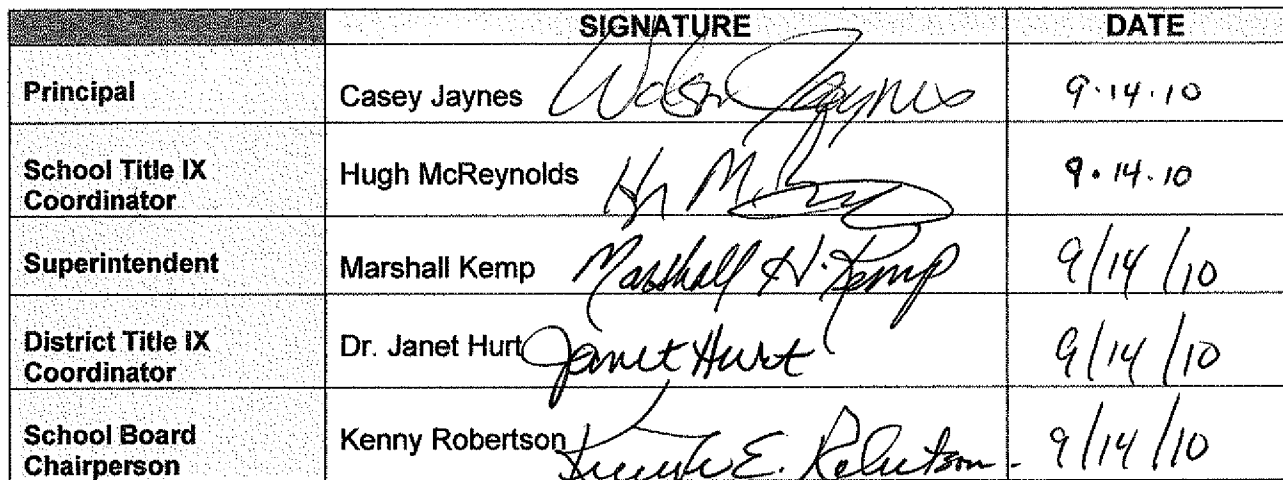 SIGNATURE DATE
Principal Casey Jaynes Jaynes 9.14.10
School Title IX Coordinator Hugh McReynolds 9.14.10
Superintendent Marshall Kemp Marshall H. Kemp 9/14/10
District Title IX Coordinator Dr. Janet Hurt Janet Hurt 9/14/10
School Board Chairperson Kenny Robertson E. Robertson 9/14/10